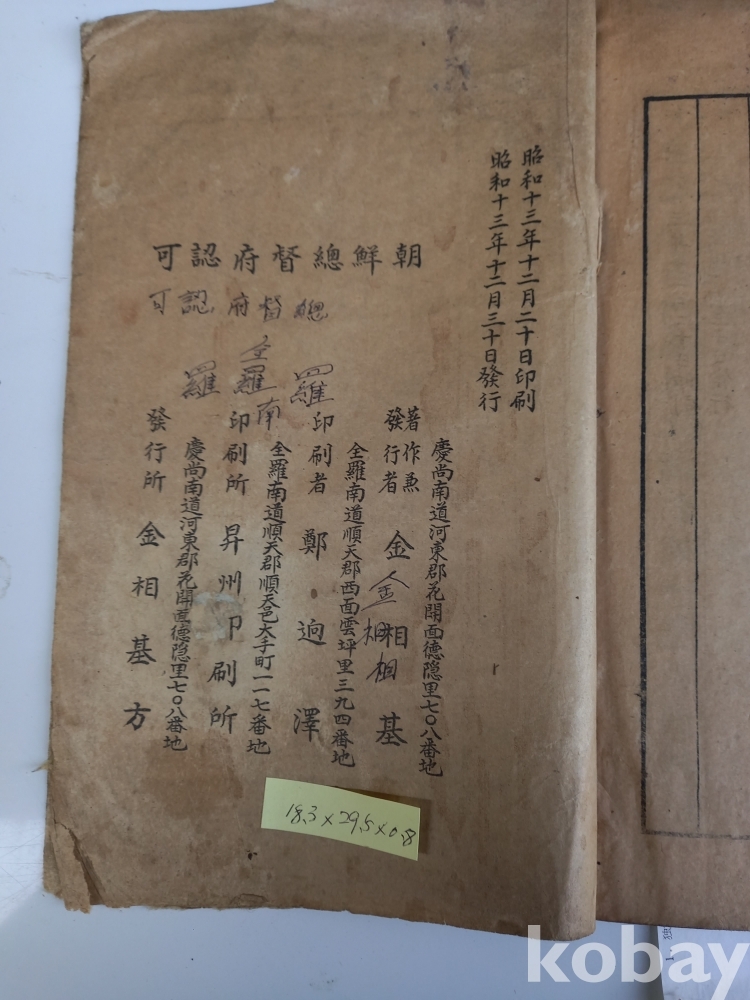 昭和十三年十二月二十日印刷
昭和十三年十二月三十日發行
朝鮮總督府認可
總督府認可
慶尚南道河東郡花開面德隱里七〇八番地
著作兼
發行者 金相基
金相相
全羅南道順天郡西面雲坪里三九四番地
印刷者 鄭逈澤
羅
全羅南道順天郡順天邑大手町一一七番地
印刷所 昇州印刷所
全羅南
慶尚南道河東郡花開面德隱里七〇八番地
發行所 金相基方
羅
18.3×29.5×0.8
kobay